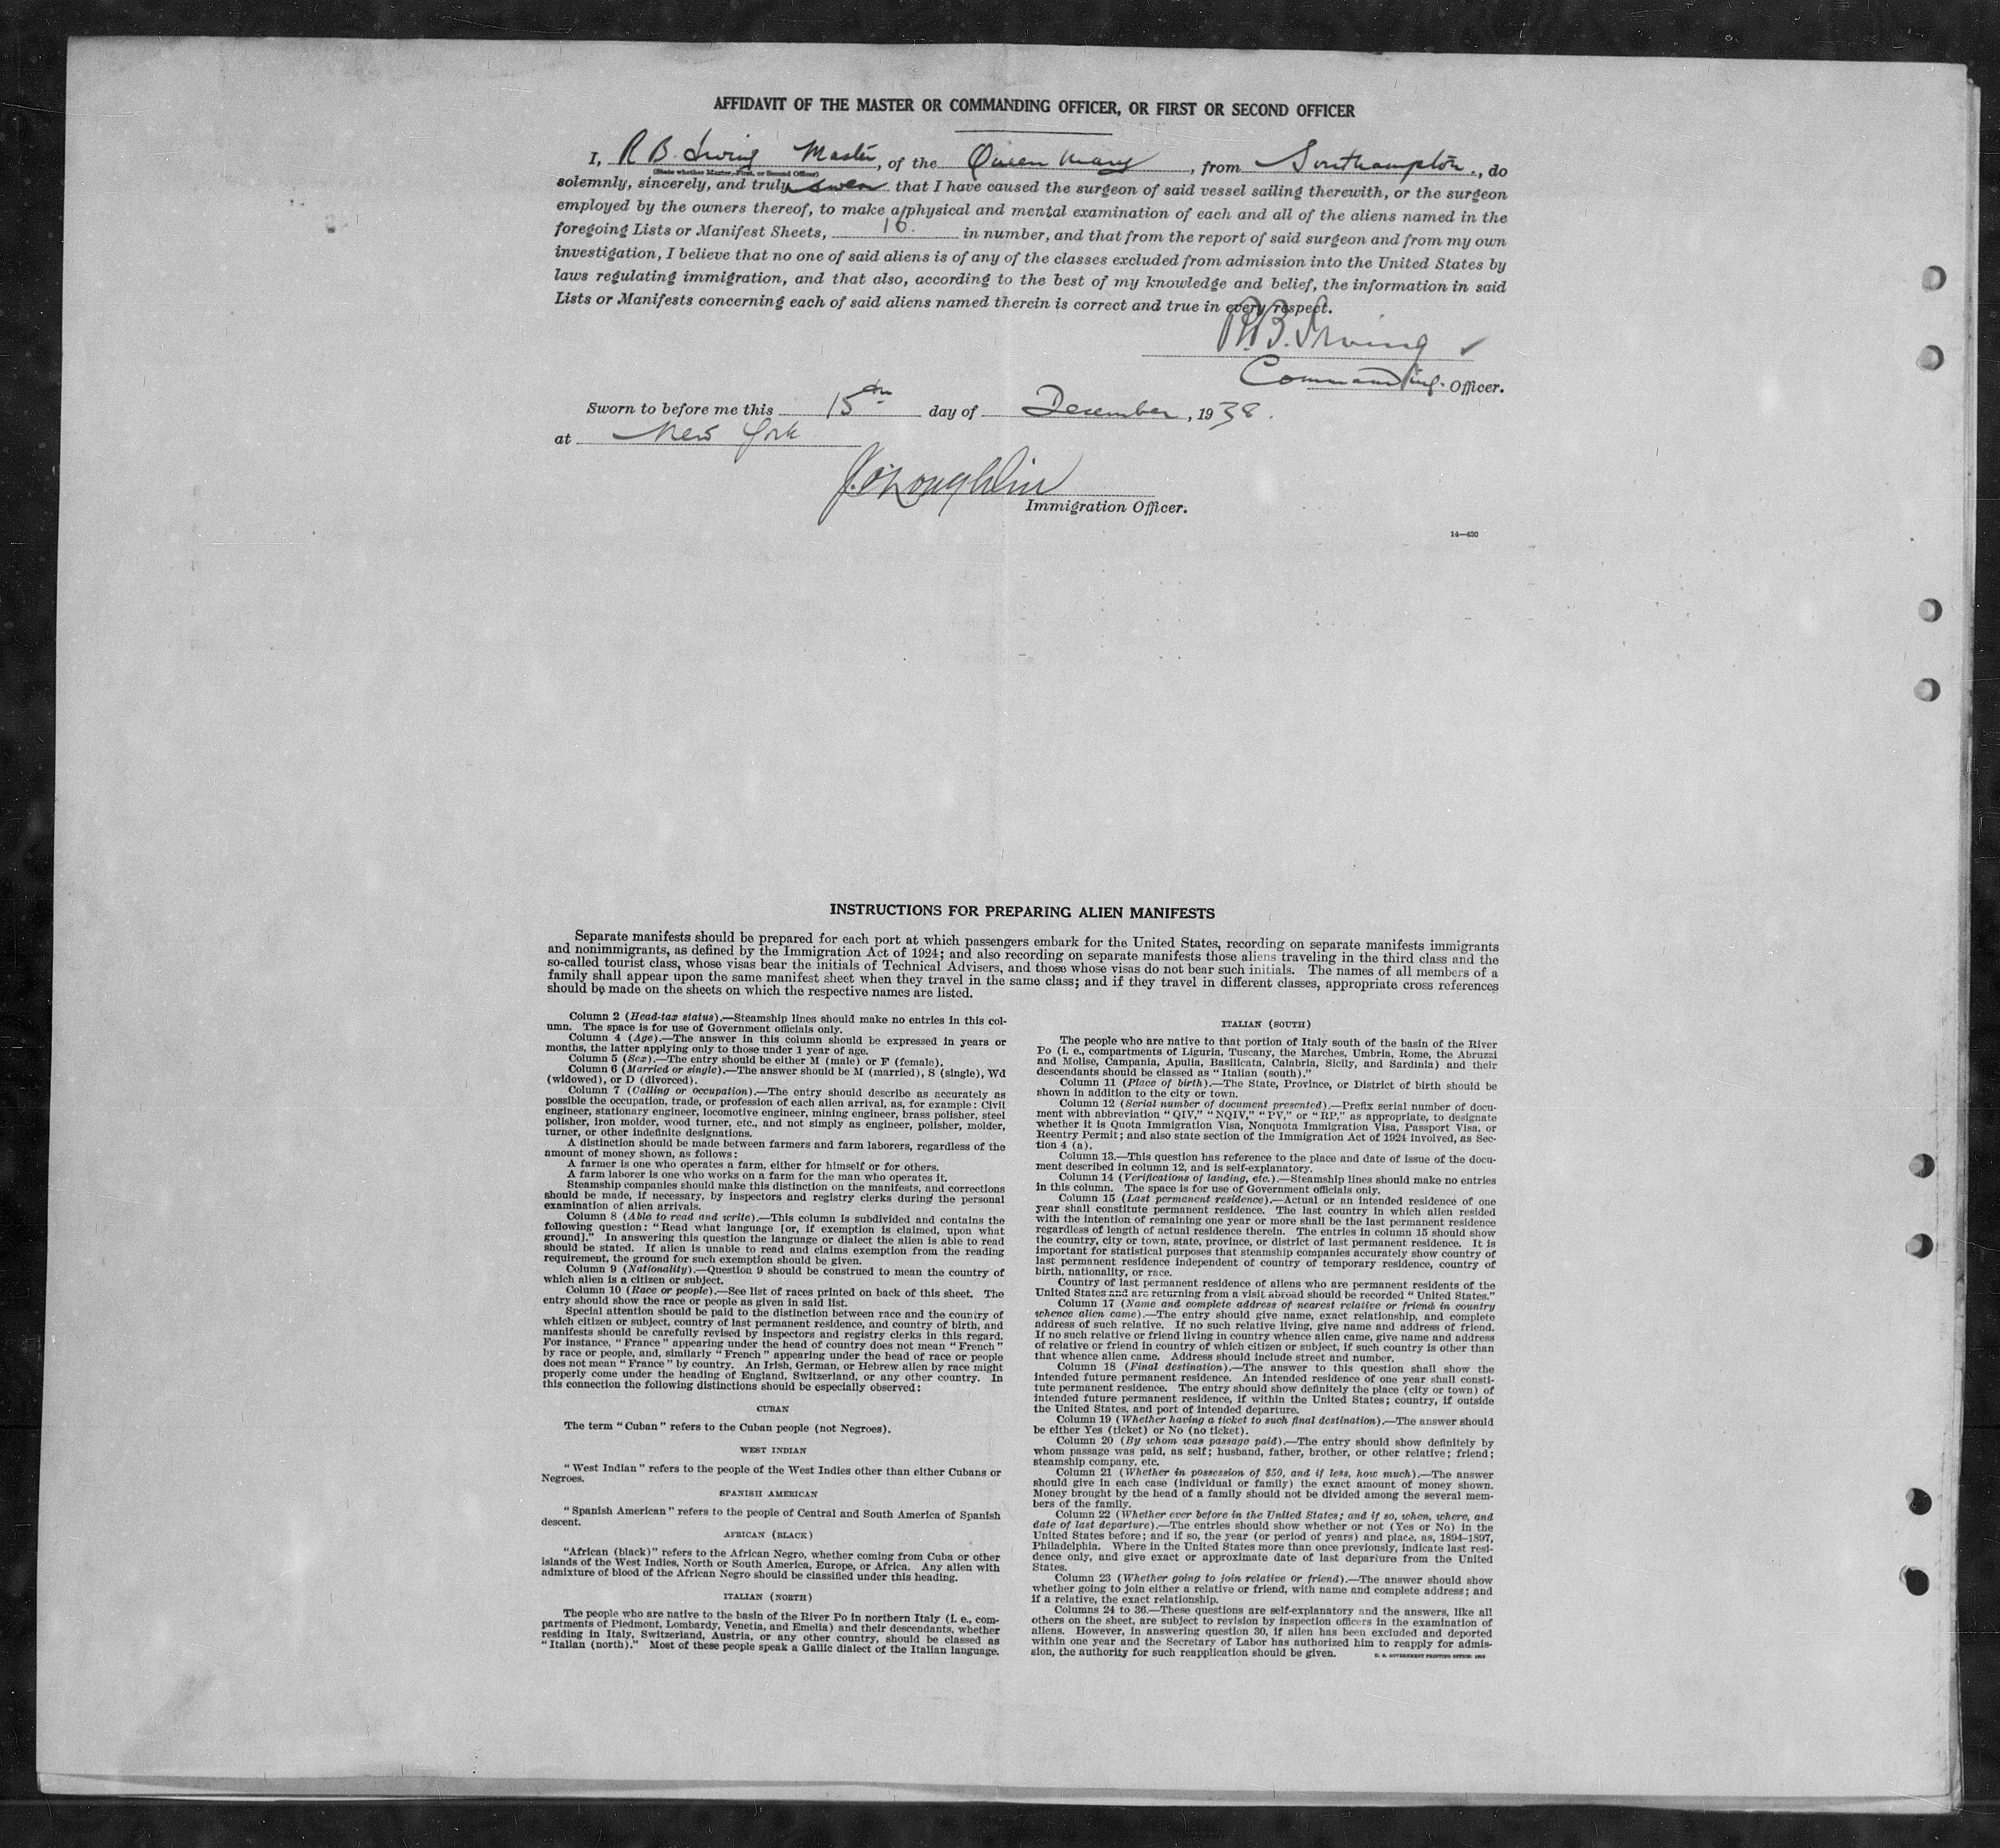 AFFIDAVIT OF THE MASTER OR COMMANDING OFFICER, OR FIRST OR SECOND OFFICER
I, R B. Irving Master, of the Queen Mary, from Southampton., do
(State whether Master, First, or Second Officer)
solemnly, sincerely, and truly swear that I have caused the surgeon of said vessel sailing therewith, or the surgeon
employed by the owners thereof, to make a physical and mental examination of each and all of the aliens named in the
foregoing Lists or Manifest Sheets, 16. in number, and that from the report of said surgeon and from my own
investigation, I believe that no one of said aliens is of any of the classes excluded from admission into the United States by
laws regulating immigration, and that also, according to the best of my knowledge and belief, the information in said
Lists or Manifests concerning each of said aliens named therein is correct and true in every respect.
R.B. Irving ✓
Commanding Officer.
Sworn to before me this 15th day of December, 1938.
at New York
J. O'Loughlin
Immigration Officer.
14—430
INSTRUCTIONS FOR PREPARING ALIEN MANIFESTS
Separate manifests should be prepared for each port at which passengers embark for the United States, recording on separate manifests immigrants
and nonimmigrants, as defined by the Immigration Act of 1924; and also recording on separate manifests those aliens traveling in the third class and the
so-called tourist class, whose visas bear the initials of Technical Advisers, and those whose visas do not bear such initials. The names of all members of a
family shall appear upon the same manifest sheet when they travel in the same class; and if they travel in different classes, appropriate cross references
should be made on the sheets on which the respective names are listed.
Column 2 (Head-tax status).—Steamship lines should make no entries in this col-
umn. The space is for use of Government officials only.
Column 4 (Age).—The answer in this column should be expressed in years or
months, the latter applying only to those under 1 year of age.
Column 5 (Sex).—The entry should be either M (male) or F (female).
Column 6 (Married or single).—The answer should be M (married), S (single), Wd
(widowed), or D (divorced).
Column 7 (Calling or occupation).—The entry should describe as accurately as
possible the occupation, trade, or profession of each alien arrival, as, for example: Civil
engineer, stationary engineer, locomotive engineer, mining engineer, brass polisher, steel
polisher, iron molder, wood turner, etc., and not simply as engineer, polisher, molder,
turner, or other indefinite designations.
A distinction should be made between farmers and farm laborers, regardless of the
amount of money shown, as follows:
A farmer is one who operates a farm, either for himself or for others.
A farm laborer is one who works on a farm for the man who operates it.
Steamship companies should make this distinction on the manifests, and corrections
should be made, if necessary, by inspectors and registry clerks during the personal
examination of alien arrivals.
Column 8 (Able to read and write).—This column is subdivided and contains the
following question: "Read what language [or, if exemption is claimed, upon what
ground]." In answering this question the language or dialect the alien is able to read
should be stated. If alien is unable to read and claims exemption from the reading
requirement, the ground for such exemption should be given.
Column 9 (Nationality).—Question 9 should be construed to mean the country of
which alien is a citizen or subject.
Column 10 (Race or people).—See list of races printed on back of this sheet. The
entry should show the race or people as given in said list.
Special attention should be paid to the distinction between race and the country of
which citizen or subject, country of last permanent residence, and country of birth, and
manifests should be carefully revised by inspectors and registry clerks in this regard.
For instance, "France" appearing under the head of country does not mean "French"
by race or people, and, similarly "French" appearing under the head of race or people
does not mean "France" by country. An Irish, German, or Hebrew alien by race might
properly come under the heading of England, Switzerland, or any other country. In
this connection the following distinctions should be especially observed:
CUBAN
The term "Cuban" refers to the Cuban people (not Negroes).
WEST INDIAN
"West Indian" refers to the people of the West Indies other than either Cubans or
Negroes.
SPANISH AMERICAN
"Spanish American" refers to the people of Central and South America of Spanish
descent.
AFRICAN (BLACK)
"African (black)" refers to the African Negro, whether coming from Cuba or other
islands of the West Indies, North or South America, Europe, or Africa. Any alien with
admixture of blood of the African Negro should be classified under this heading.
ITALIAN (NORTH)
The people who are native to the basin of the River Po in northern Italy (i. e., com-
partments of Piedmont, Lombardy, Venetia, and Emelia) and their descendants, whether
residing in Italy, Switzerland, Austria, or any other country, should be classed as
"Italian (north)." Most of these people speak a Gallic dialect of the Italian language.
ITALIAN (SOUTH)
The people who are native to that portion of Italy south of the basin of the River
Po (i. e., compartments of Liguria, Tuscany, the Marches, Umbria, Rome, the Abruzzi
and Molise, Campania, Apulia, Basilicata, Calabria, Sicily, and Sardinia) and their
descendants should be classed as "Italian (south)."
Column 11 (Place of birth).—The State, Province, or District of birth should be
shown in addition to the city or town.
Column 12 (Serial number of document presented).—Prefix serial number of docu-
ment with abbreviation "QIV," "NQIV," "PV," or "RP," as appropriate, to designate
whether it is Quota Immigration Visa, Nonquota Immigration Visa, Passport Visa, or
Reentry Permit; and also state section of the Immigration Act of 1924 involved, as Sec-
tion 4 (a).
Column 13.—This question has reference to the place and date of issue of the docu-
ment described in column 12, and is self-explanatory.
Column 14 (Verifications of landing, etc.).—Steamship lines should make no entries
in this column. The space is for use of Government officials only.
Column 15 (Last permanent residence).—Actual or an intended residence of one
year shall constitute permanent residence. The last country in which alien resided
with the intention of remaining one year or more shall be the last permanent residence
regardless of length of actual residence therein. The entries in column 15 should show
the country, city or town, state, province, or district of last permanent residence. It is
important for statistical purposes that steamship companies accurately show country of
last permanent residence independent of country of temporary residence, country of
birth, nationality, or race.
Country of last permanent residence of aliens who are permanent residents of the
United States and are returning from a visit abroad should be recorded "United States."
Column 17 (Name and complete address of nearest relative or friend in country
whence alien came).—The entry should give name, exact relationship, and complete
address of such relative. If no such relative living, give name and address of friend.
If no such relative or friend living in country whence alien came, give name and address
of relative or friend in country of which citizen or subject, if such country is other than
that whence alien came. Address should include street and number.
Column 18 (Final destination).—The answer to this question shall show the
intended future permanent residence. An intended residence of one year shall consti-
tute permanent residence. The entry should show definitely the place (city or town) of
intended future permanent residence, if within the United States; country, if outside
the United States, and port of intended departure.
Column 19 (Whether having a ticket to such final destination).—The answer should
be either Yes (ticket) or No (no ticket).
Column 20 (By whom was passage paid).—The entry should show definitely by
whom passage was paid, as self; husband, father, brother, or other relative; friend;
steamship company, etc.
Column 21 (Whether in possession of $50, and if less, how much).—The answer
should give in each case (individual or family) the exact amount of money shown.
Money brought by the head of a family should not be divided among the several mem-
bers of the family.
Column 22 (Whether ever before in the United States; and if so, when, where, and
date of last departure).—The entries should show whether or not (Yes or No) in the
United States before; and if so, the year (or period of years) and place, as, 1894-1897,
Philadelphia. Where in the United States more than once previously, indicate last resi-
dence only, and give exact or approximate date of last departure from the United
States.
Column 23 (Whether going to join relative or friend).—The answer should show
whether going to join either a relative or friend, with name and complete address; and
if a relative, the exact relationship.
Columns 24 to 36.—These questions are self-explanatory and the answers, like all
others on the sheet, are subject to revision by inspection officers in the examination of
aliens. However, in answering question 30, if alien has been excluded and deported
within one year and the Secretary of Labor has authorized him to reapply for admis-
sion, the authority for such reapplication should be given.
U. S. GOVERNMENT PRINTING OFFICE: